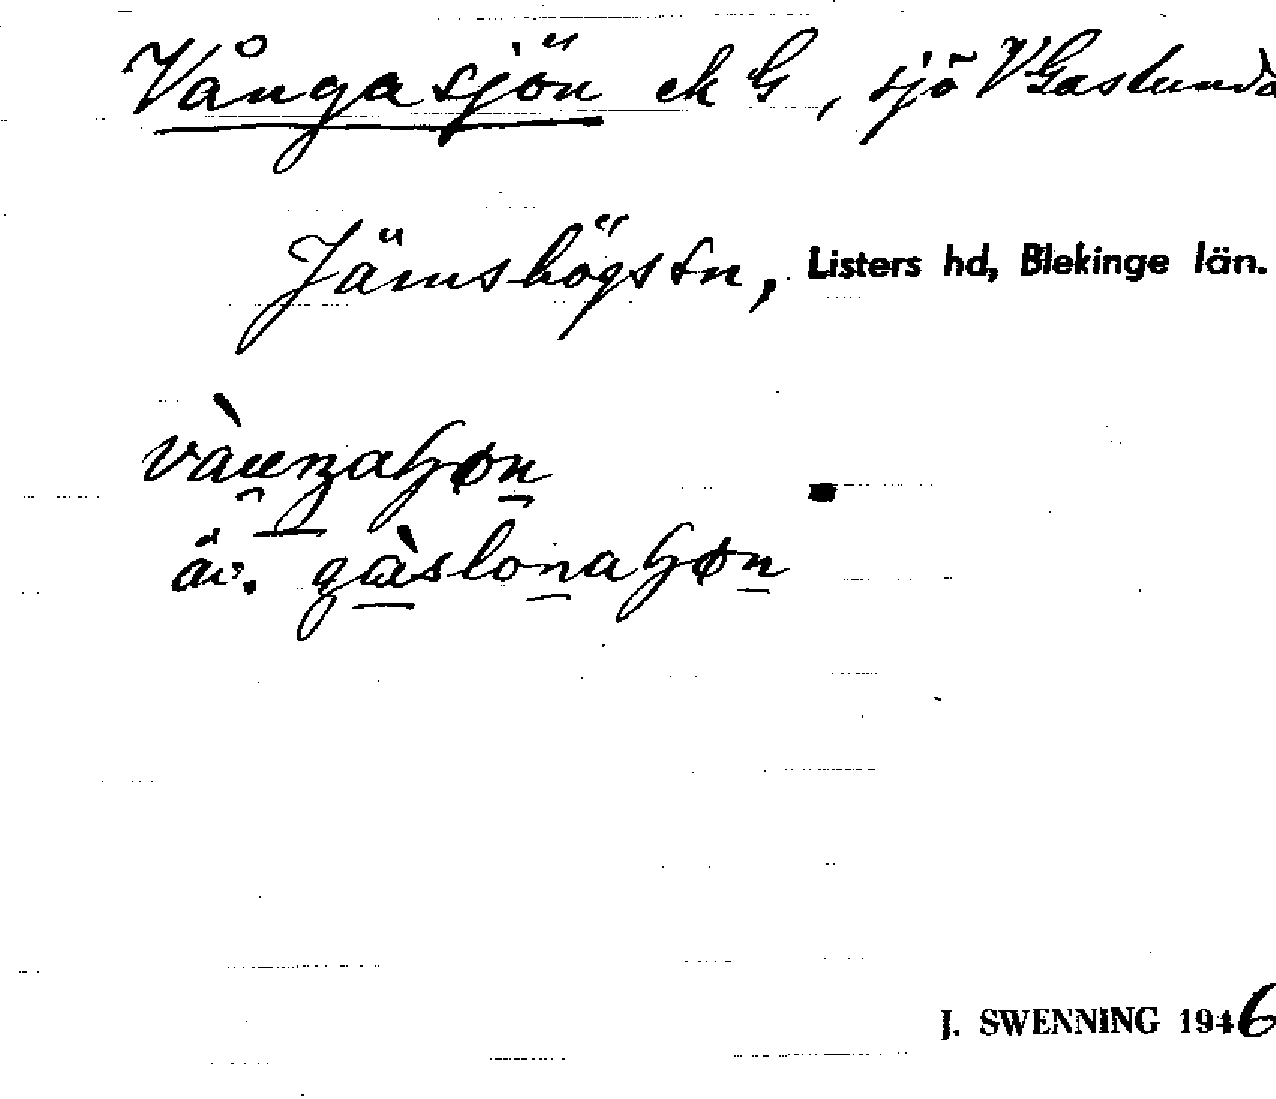 Vångasjön ek G, sjö V Gaslunda
Jämshögs sn, Listers hd, Blekinge län.
äv.
J. SWENNING 1946